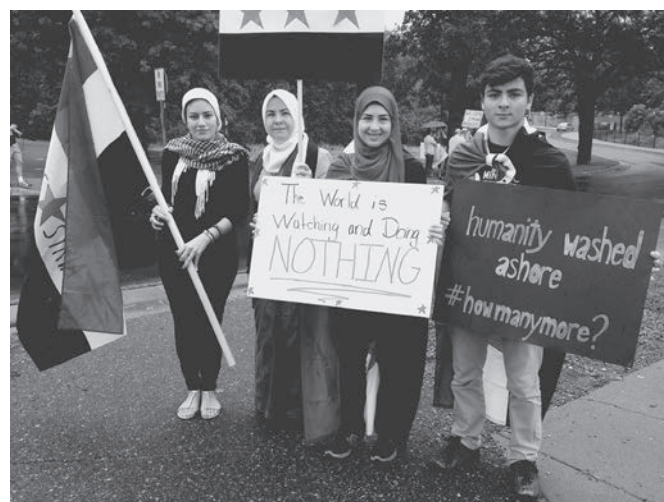 The World is
Watching and Doing
NOTHING
humanity washed
ashore
#howmanymore?